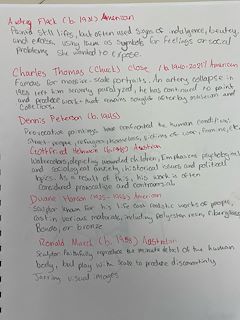 Audrey Flack (b. 1931) American
Paints still lifes, but often used signs of indulgence, beauty,
and excess, using them as symbols for feelings or social
problems she wanted to expose.
Charles Thomas (Chuck) Close (b. 1940-2021) American
Famous for massive-scale portraits. An artery collapse in
1988 left him severely paralyzed, he has continued to paint
and produce work that remains sought after by museum and
collectors.
Dennis Peterson (b. 1945)
Provocative paintings have confronted the human condition.
Street people, refugees, homeless, victims of war, famine, etc.
Gottfried Helnwein (b. 1948) Austrian
Watercolors, depicting wounded children, Emphasizes psychological
and sociological anxiety, historical issues and political
topics. As a result of this, his work is often
considered provocative and controversial
Duane Hanson (1925-1996) American
Sculptor known for his life cast realistic works of people,
cast in various materials, including polyester resin, fiberglass,
Bondo, or bronze
Ronald Mueck (b. 1958) Australian
Sculptor faithfully reproduce the minute detail of the human
body, but play with scale to produce disconcertingly
jarring visual images